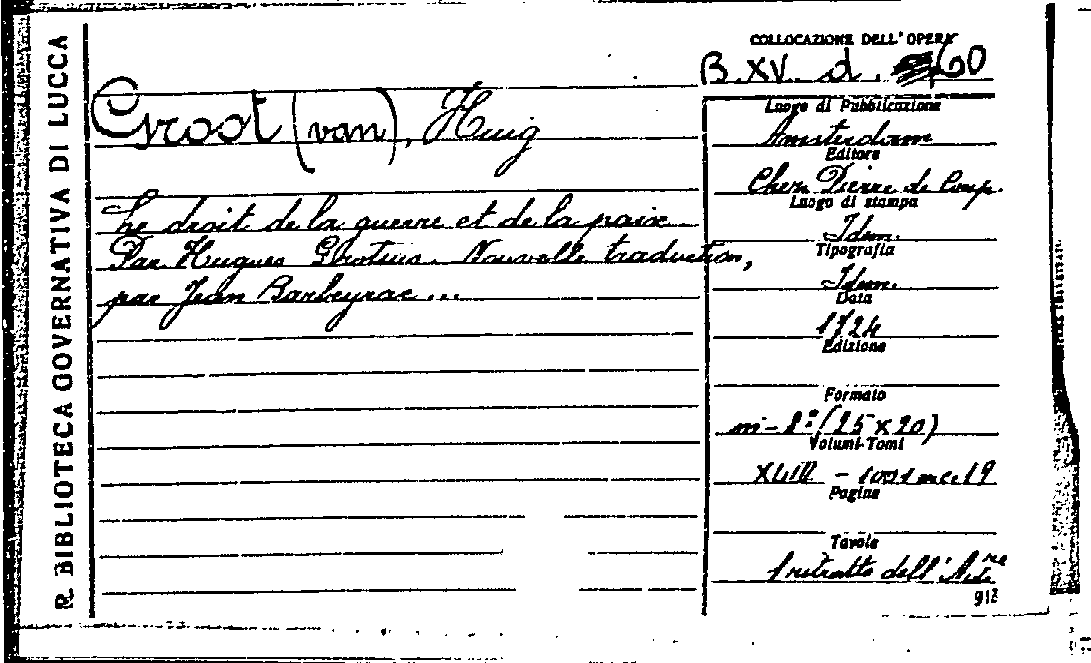 R. BIBLIOTECA GOVERNATIVA DI LUCCA
COLLOCAZIONE DELL'OPERA
B. XV. d. 60
Groot (van), Huig
Le droit de la guerre et de la paix
Par Hugues Grotius. Nouvelle traduction,
par Jean Barbeyrac ...
Luogo di Pubblicazione
Amsterdam
Editore
Chez Pierre de Coup.
Luogo di stampa
Idem.
Tipografia
Idem.
Data
1724
Edizione
Formato
in-8º (25 x 20)
Volumi-Tomi
XLIII - 1001
Pagine
Tavole
1 ritratto dell'Aut.re
912